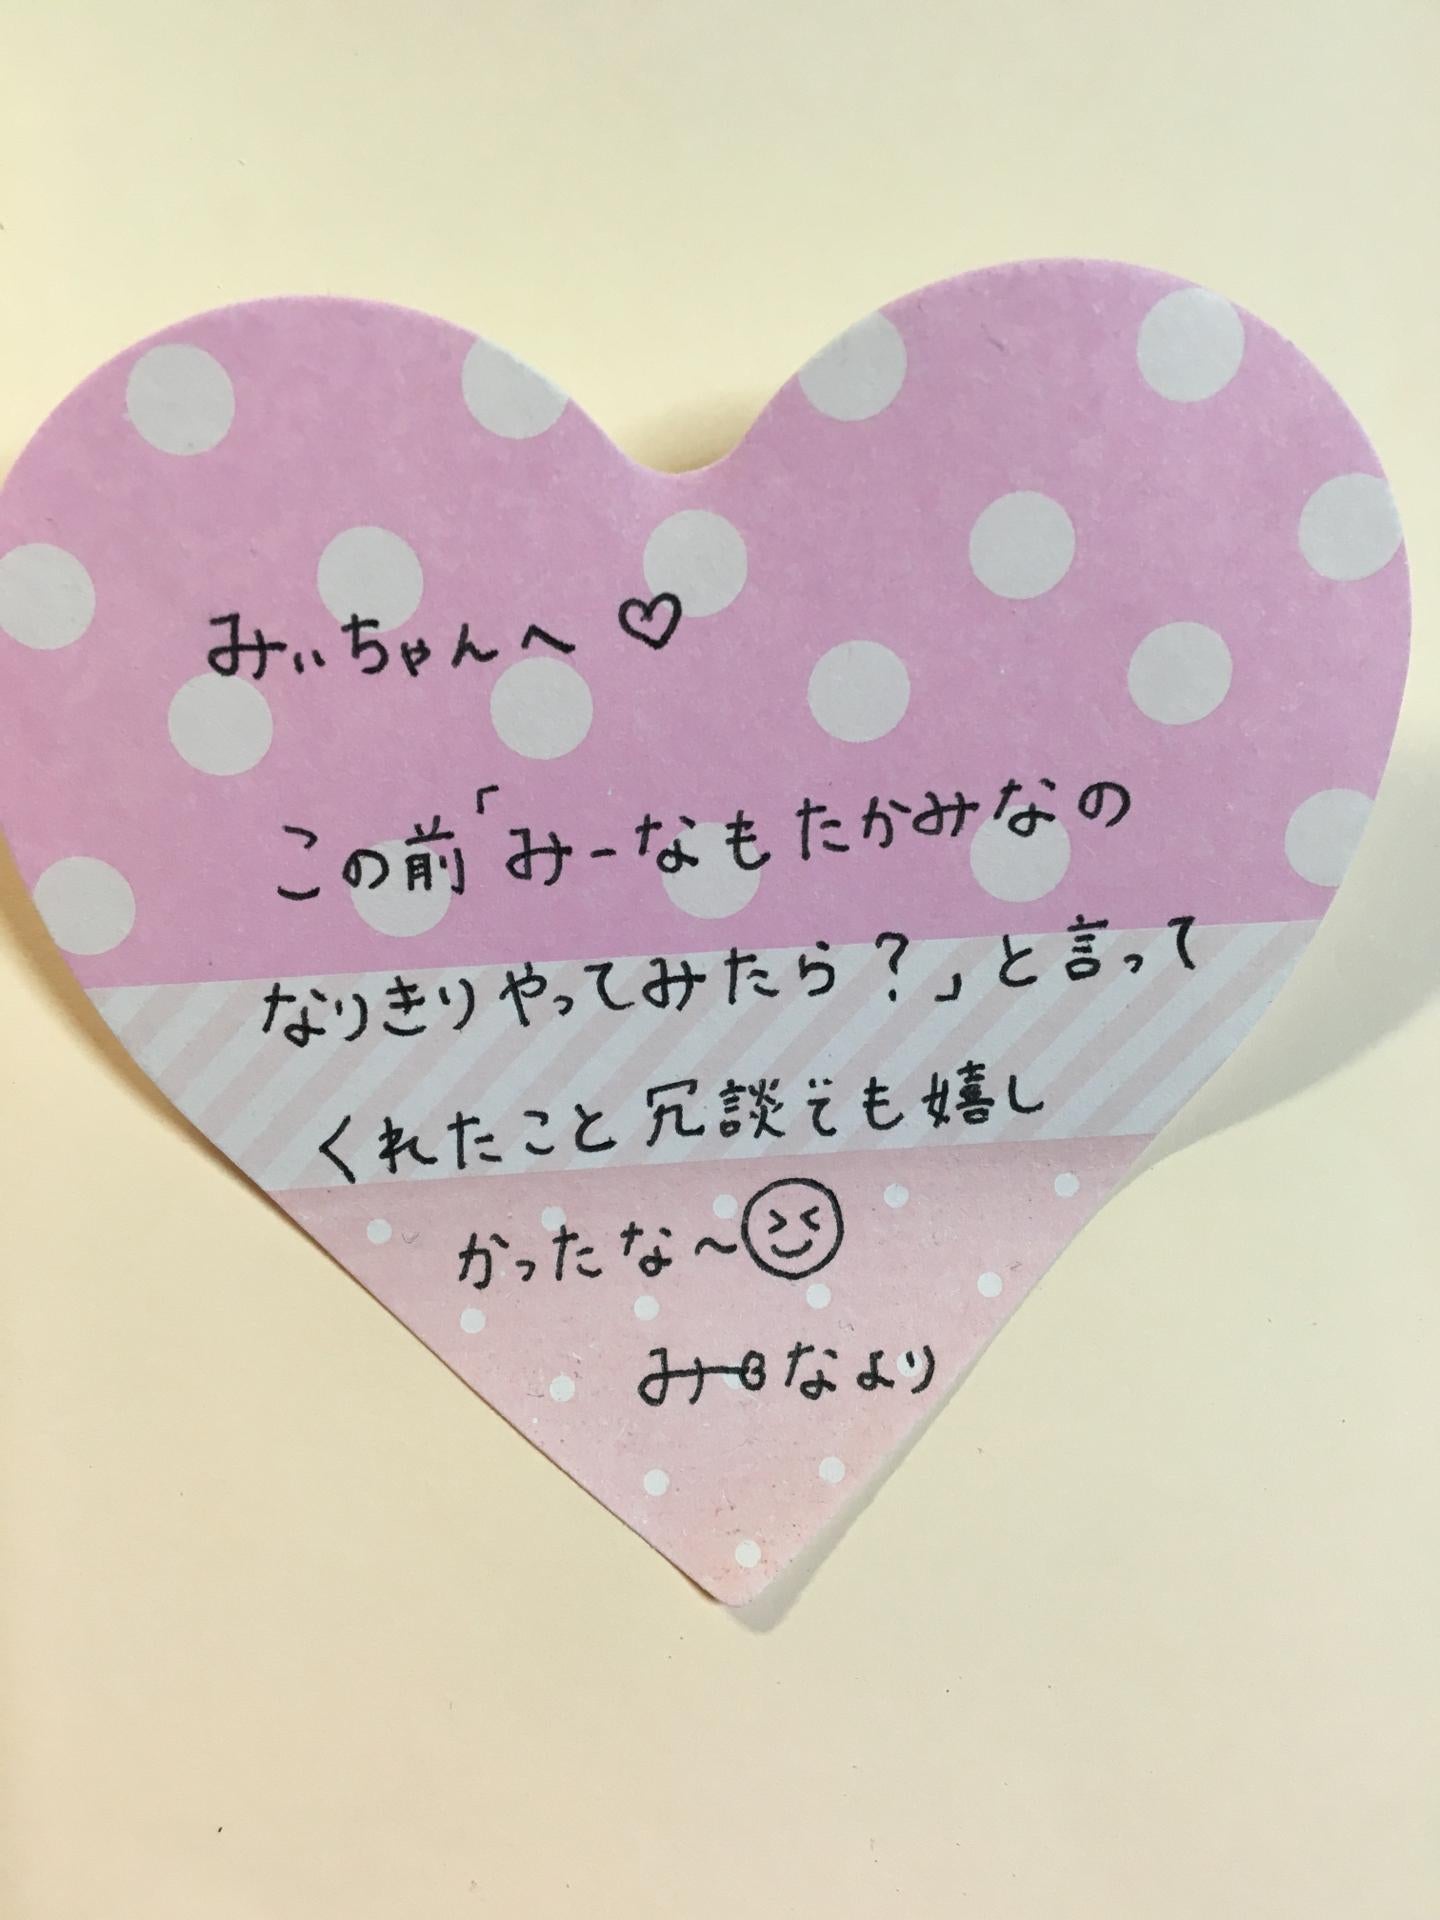 みぃちゃんへ♡
この前「みーなもたかみなの
なりきりやってみたら？」と言って
くれたこと冗談でも嬉し
かったな〜
みーなより